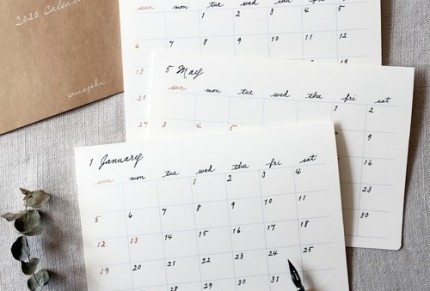 2020 Calendar
sun mon tue wed thu fri sat
1 2 3 4 5
6 7 8 9 10 11 12
13
5 May
sun mon tue wed thu fri sat
1 2
3 4 5
9
16
23
30
1 January
sun mon tue wed thu fri sat
1 2 3 4
5 6 7 8 9 10 11
12 13 14 15 16 17 18
19 20 21 22 23 24 25
28 30 31